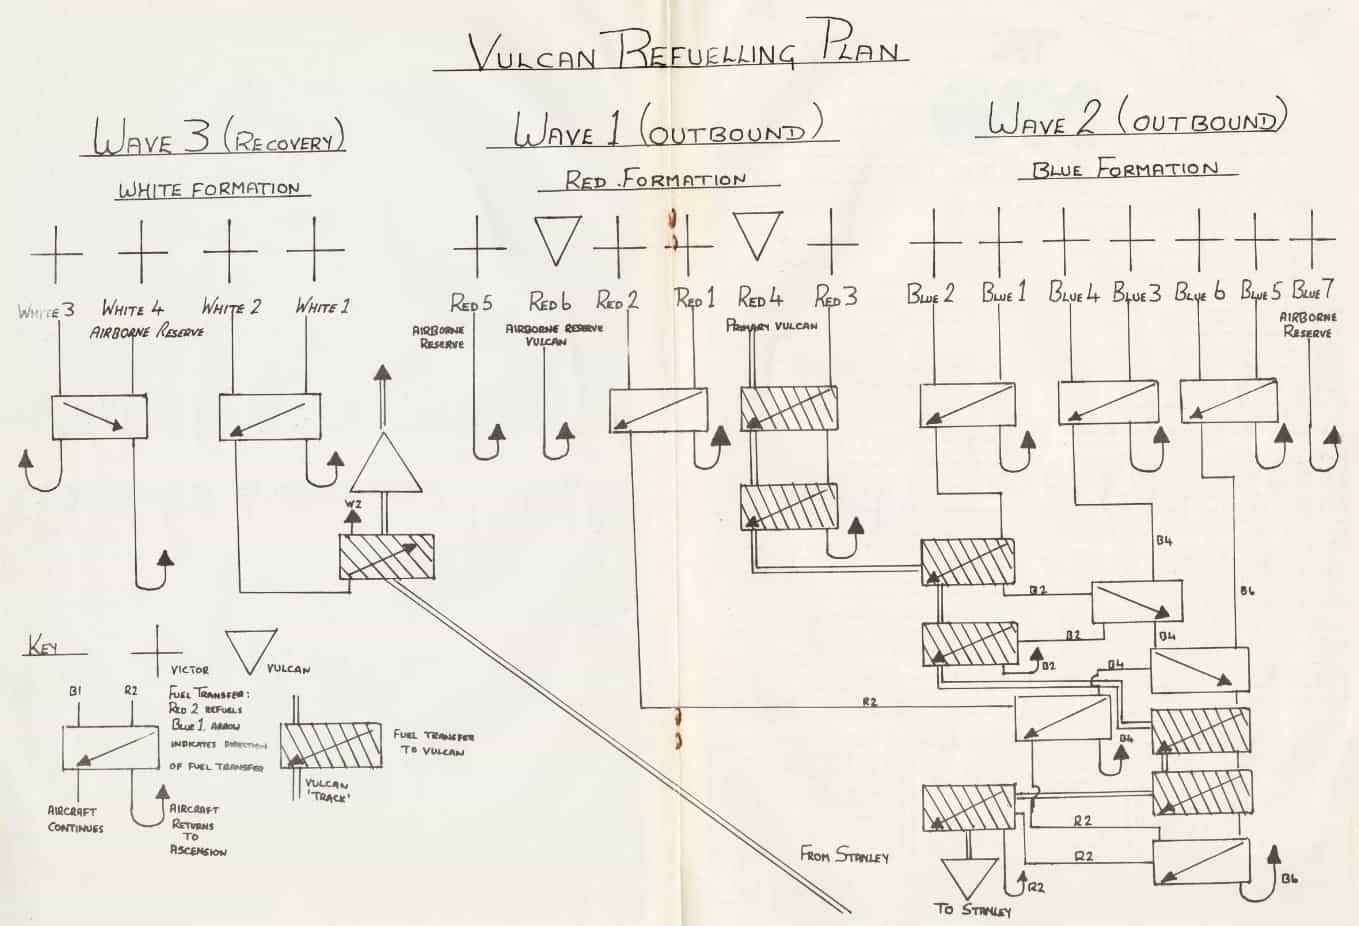 VULCAN REFUELLING PLAN
WAVE 3 (RECOVERY)
WHITE FORMATION
WHITE 3
WHITE 4
AIRBORNE RESERVE
WHITE 2
WHITE 1
W2
WAVE 1 (OUTBOUND)
RED FORMATION
RED 5
AIRBORNE
RESERVE
RED 6
AIRBORNE RESERVE
VULCAN
RED 2
RED 1
RED 4
PRIMARY VULCAN
RED 3
WAVE 2 (OUTBOUND)
BLUE FORMATION
BLUE 2
BLUE 1
BLUE 4
BLUE 3
BLUE 6
BLUE 5
BLUE 7
AIRBORNE
RESERVE
B4
B2
B6
B2
B4
B2
B4
R2
B4
R2
R2
B6
R2
FROM STANLEY
TO STANLEY
KEY
VICTOR
VULCAN
B1
R2
FUEL TRANSFER:
RED 2 REFUELS
BLUE 1. ARROW
INDICATES DIRECTION
OF FUEL TRANSFER
AIRCRAFT
CONTINUES
AIRCRAFT
RETURNS
TO
ASCENSION
FUEL TRANSFER
TO VULCAN
VULCAN
'TRACK'